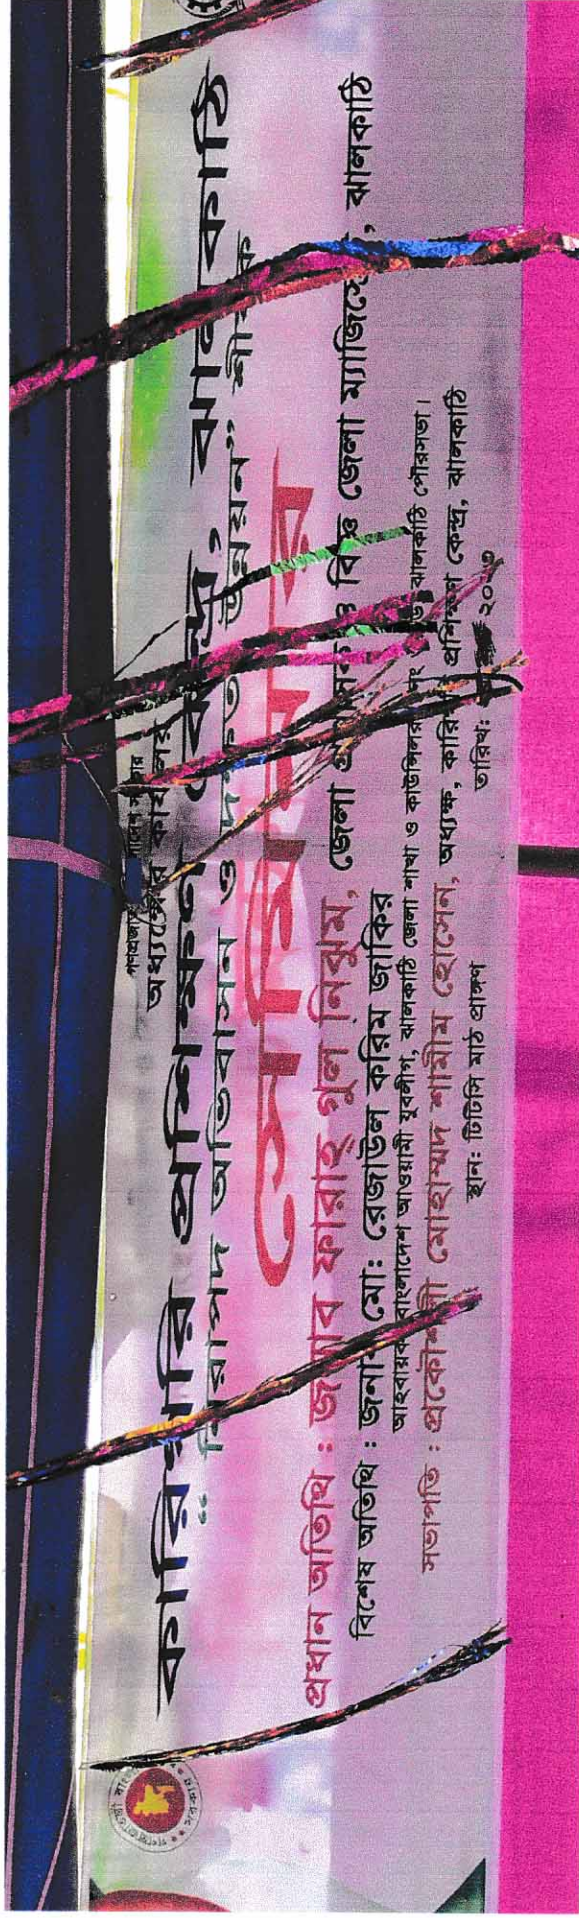 গণপ্রজাতন্ত্রী বাংলাদেশ সরকার
অধ্যক্ষের কার্যালয়
কারিগরি প্রশিক্ষণ কেন্দ্র, ঝালকাঠি
“ নিরাপদ অভিবাসন ও দক্ষতা উন্নয়ন” শীর্ষক
সেমিনার
প্রধান অতিথি : জনাব ফারাহ্ গুল নিঝুম, জেলা প্রশাসক ও বিজ্ঞ জেলা ম্যাজিস্ট্রেট, ঝালকাঠি
বিশেষ অতিথি : জনাব মো: রেজাউল করিম জাকির
আহবায়ক, বাংলাদেশ আওয়ামী যুবলীগ, ঝালকাঠি জেলা শাখা ও কাউন্সিলর নং ঝালকাঠি পৌরসভা।
সভাপতি : প্রকৌশলী মোহাম্মদ শামীম হোসেন, অধ্যক্ষ, কারিগরি প্রশিক্ষণ কেন্দ্র, ঝালকাঠি
স্থান: টিটিসি মাঠ প্রাঙ্গণ তারিখ: ২০২৩